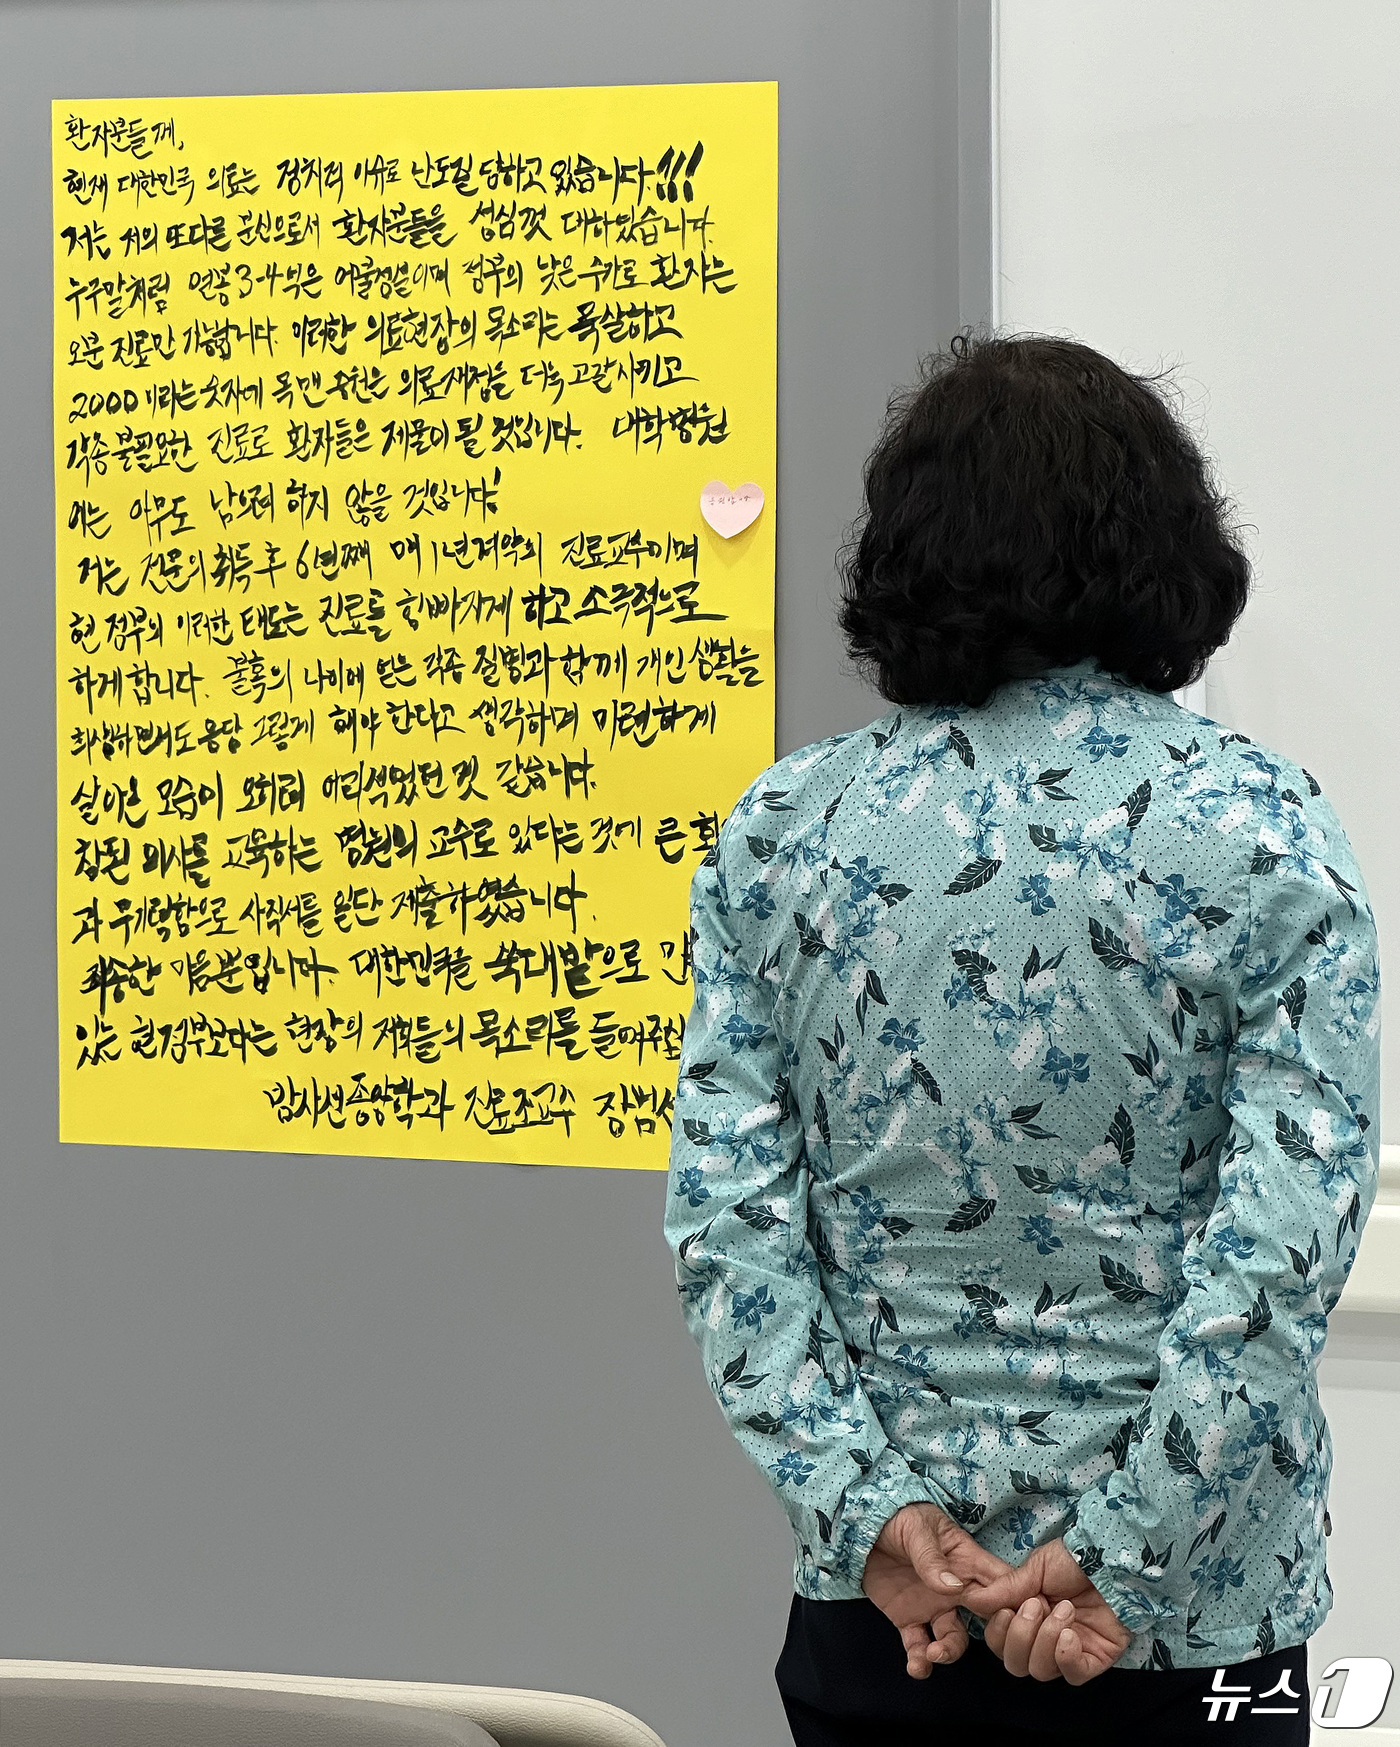 환자분들께,
현재 대한민국 의료는 정치적 이유로 난도질 당하고 있습니다!!!
저는 저의 또다른 분신으로서 환자분들을 성심껏 대하였습니다.
누구말처럼 연봉 3-4억은 어불성설이며 정부의 낮은 수가로 환자는
오분 진료만 가능합니다. 이러한 의료현장의 목소리는 묵살하고
2000이라는 숫자에 목맨 증원은 의료재정을 더욱 고갈시키고
각종 불필요한 진료로 환자들은 제물이 될 것입니다. 대학병원
에는 아무도 남으려 하지 않을 것입니다!
저는 전문의 취득 후 6년째 매 1년 계약의 진료교수이며
현 정부의 이러한 태도는 진료를 힘빠지게 하고 소극적으로
하게 합니다. 불혹의 나이에 얻는 각종 질병과 함께 개인생활을
희생하면서도 응당 그렇게 해야 한다고 생각하며 미련하게
살아온 모습이 오히려 어리석었던 것 같습니다.
참된 의사를 교육하는 병원의 교수로 있다는 것에 큰
과 무기력함으로 사직서를 일단 제출하였습니다.
죄송한 마음뿐입니다. 대한민국을 쑥대밭으로
있는 현정부보다는 현장의 저희들의 목소리를 들어주십
방사선종양학과 진료조교수 장범
뉴스1